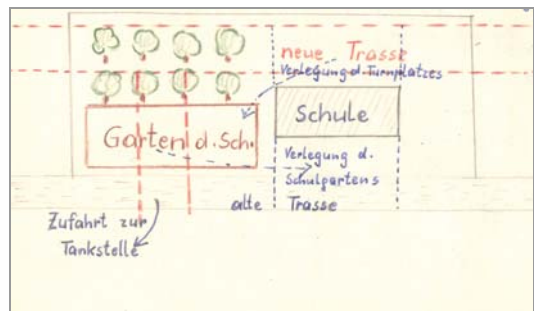 neue Trasse
Verlegung d. Turnplatzes
Schule
Garten d. Sch.
Verlegung d.
Schulgartens
alte Trasse
Zufahrt zur
Tankstelle